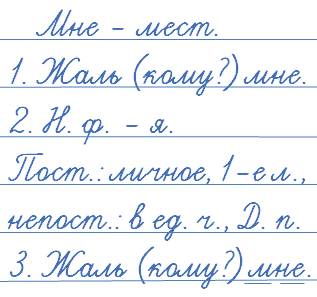 Мне - мест.
1. Жаль (кому?) мне.
2. Н. ф. - я.
Пост.: личное, 1-е л.,
непост.: в ед. ч., Д. п.
3. Жаль (кому?) мне.